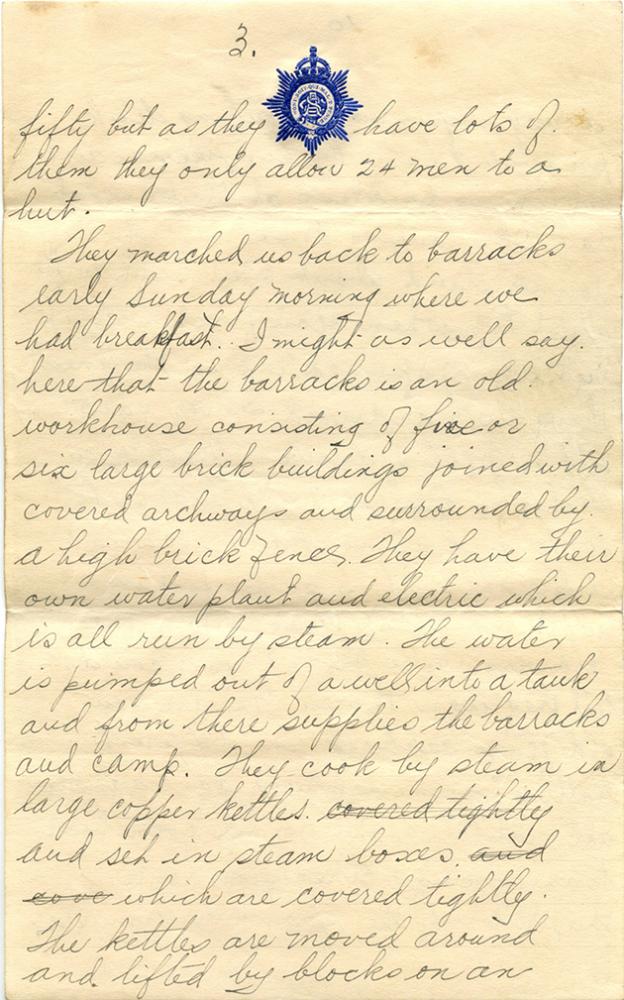 3.
fifty but as they have lots of
them they only allow 24 men to a
hut.
They marched us back to barracks
early Sunday morning where we
had breakfast. I might as well say.
here that the barracks is an old.
workhouse consisting of five or
six large brick buildings joined with
covered archways and surrounded by.
a high brick fence. They have their
own water plant and electric which
is all run by steam. The water
is pumped out of a well into a tank
and from there supplies the barracks
and camp. They cook by steam in
large copper kettles. covered tightly
and set in steam boxes. and
cove which are covered tightly.
The kettles are moved around
and lifted by blocks on an